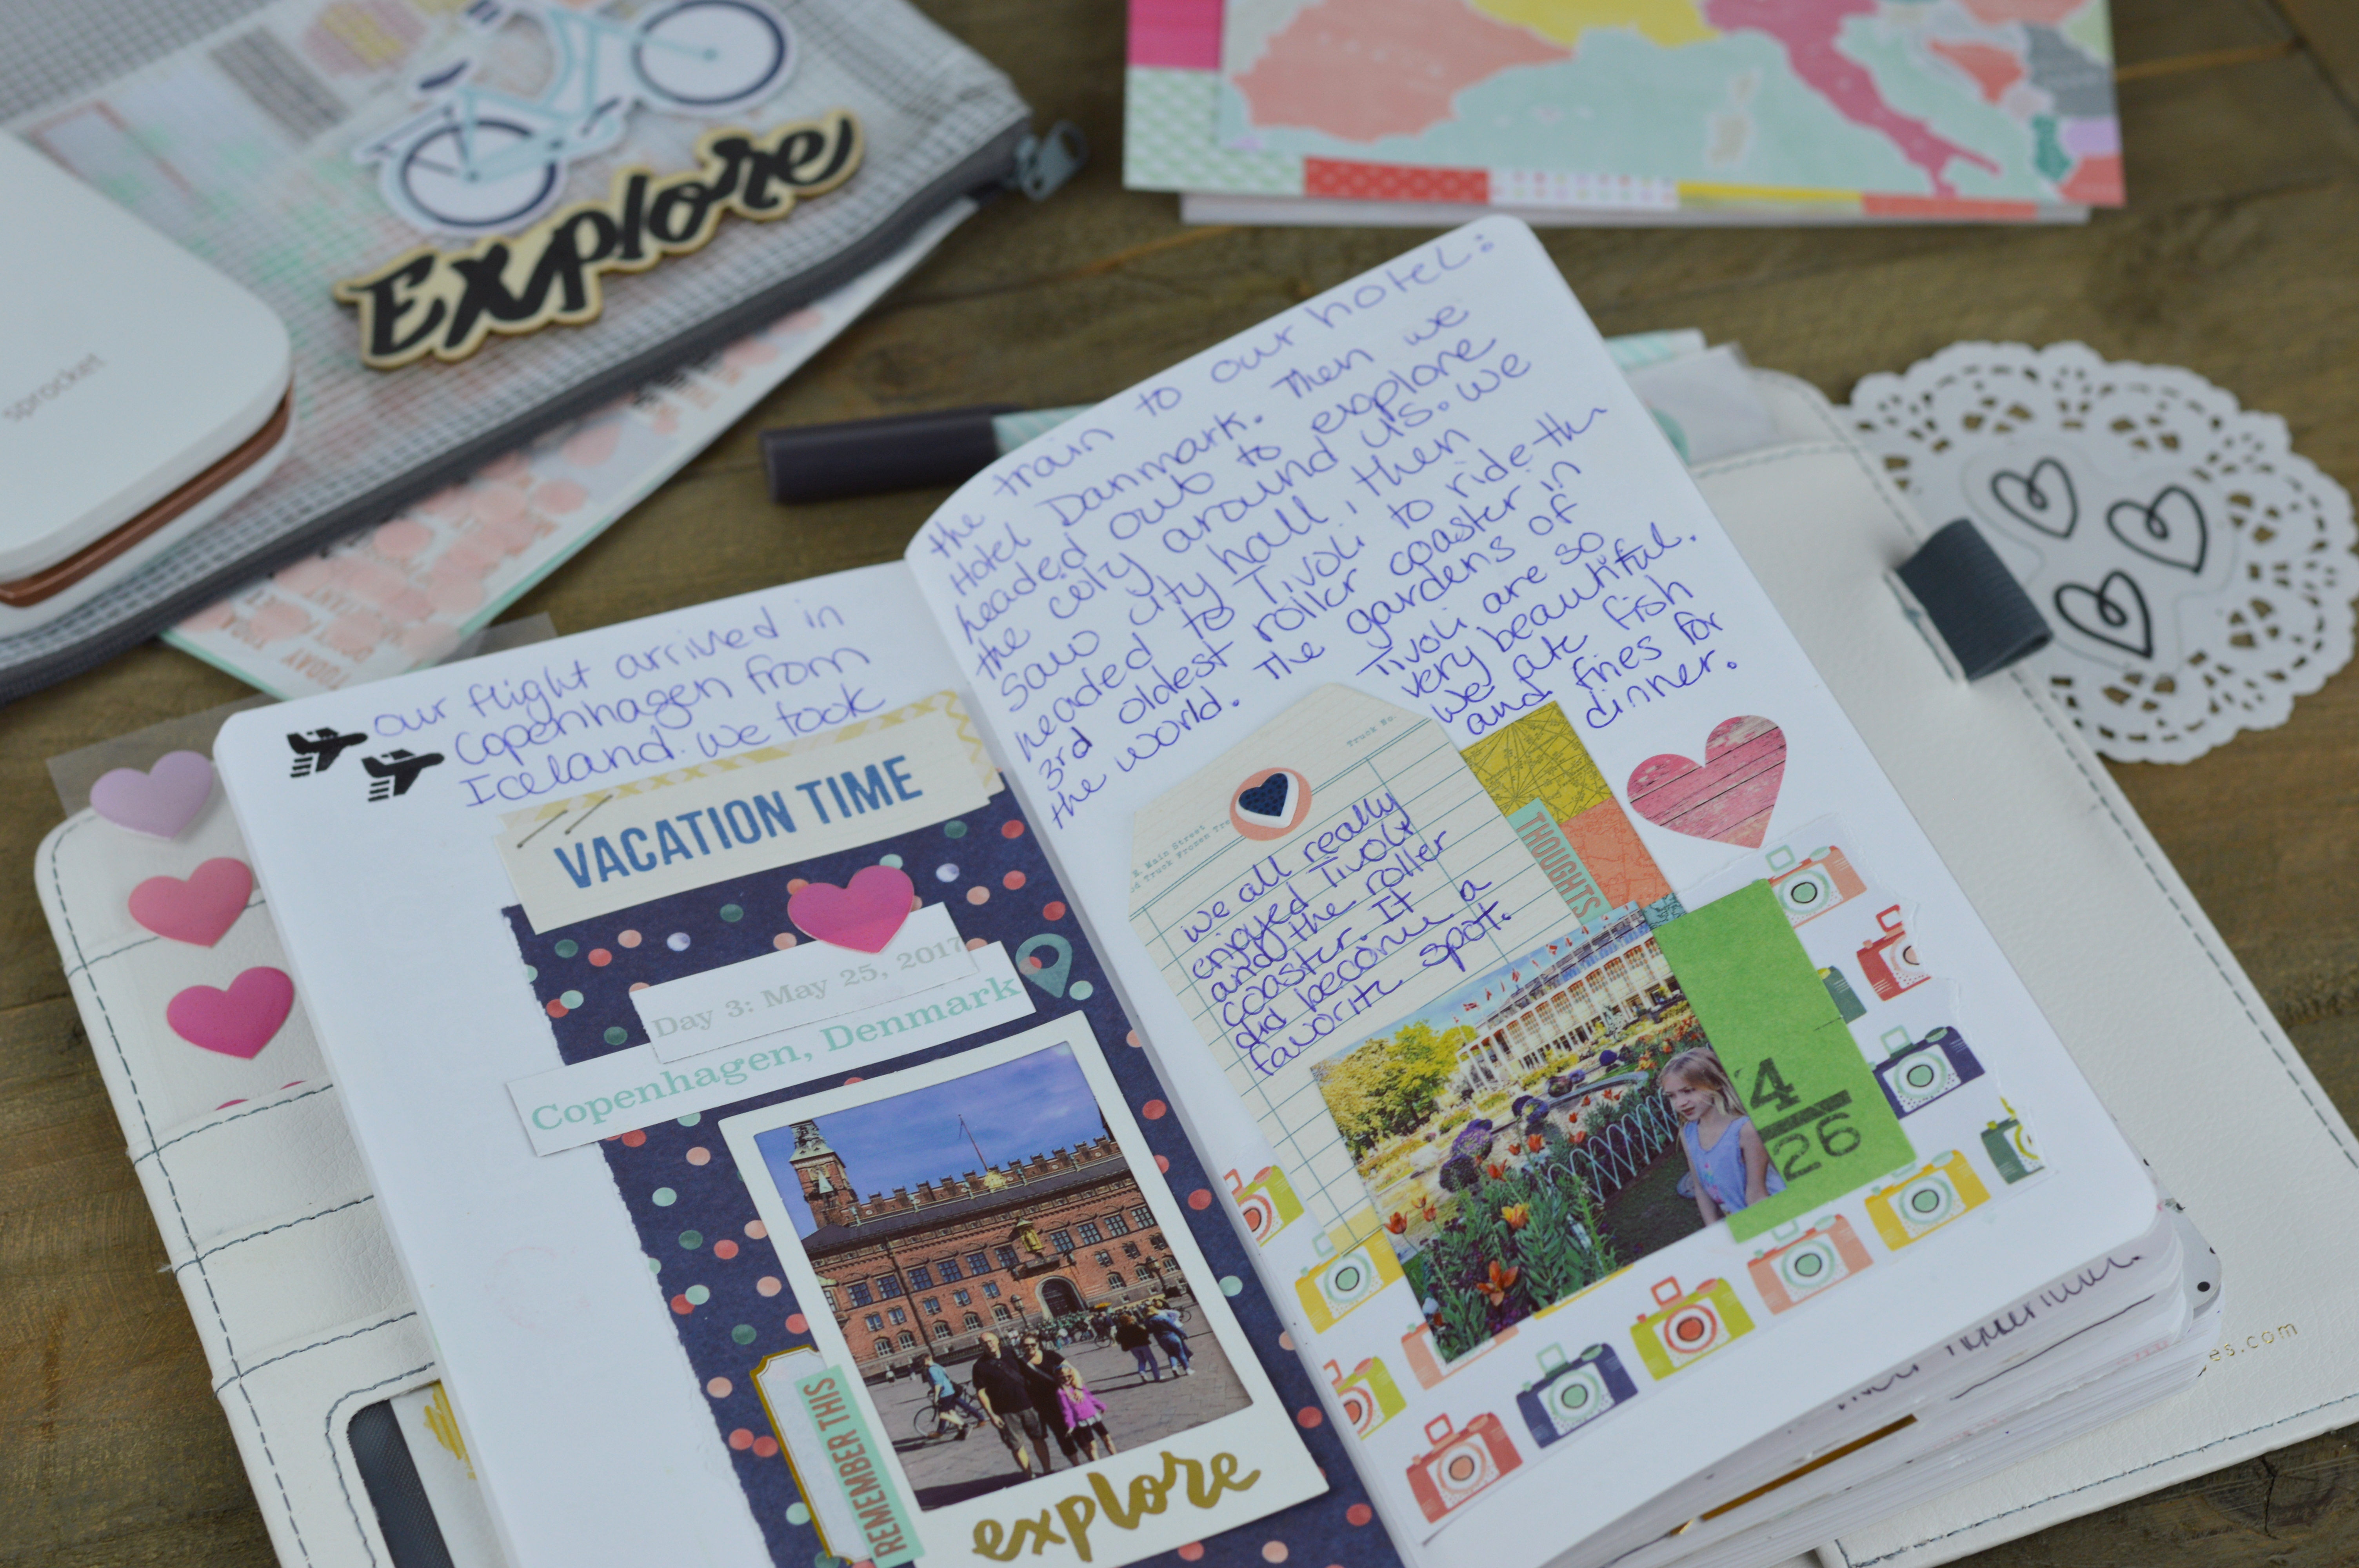 Explore
sprocket
TODAY
our flight arrived in
Copenhagen from
Iceland. We took
VACATION TIME
Day 3: May 25, 2017
Copenhagen, Denmark
REMEMBER THIS
explore
the train to our hotel:
Hotel Danmark. Then we
headed out to explore
the city around us. We
saw city hall, then
headed to Tivoli to ride th
3rd oldest roller coaster in
the world. The gardens of
Tivoli are so
very beautiful.
We ate fish
and fries for
dinner.
Truck No.
Main Street
Truck Frozen
we all really
enjoyed Tivoli
and the roller
coaster. It
did become a
favorite spot.
THOUGHTS
4
26
es.com